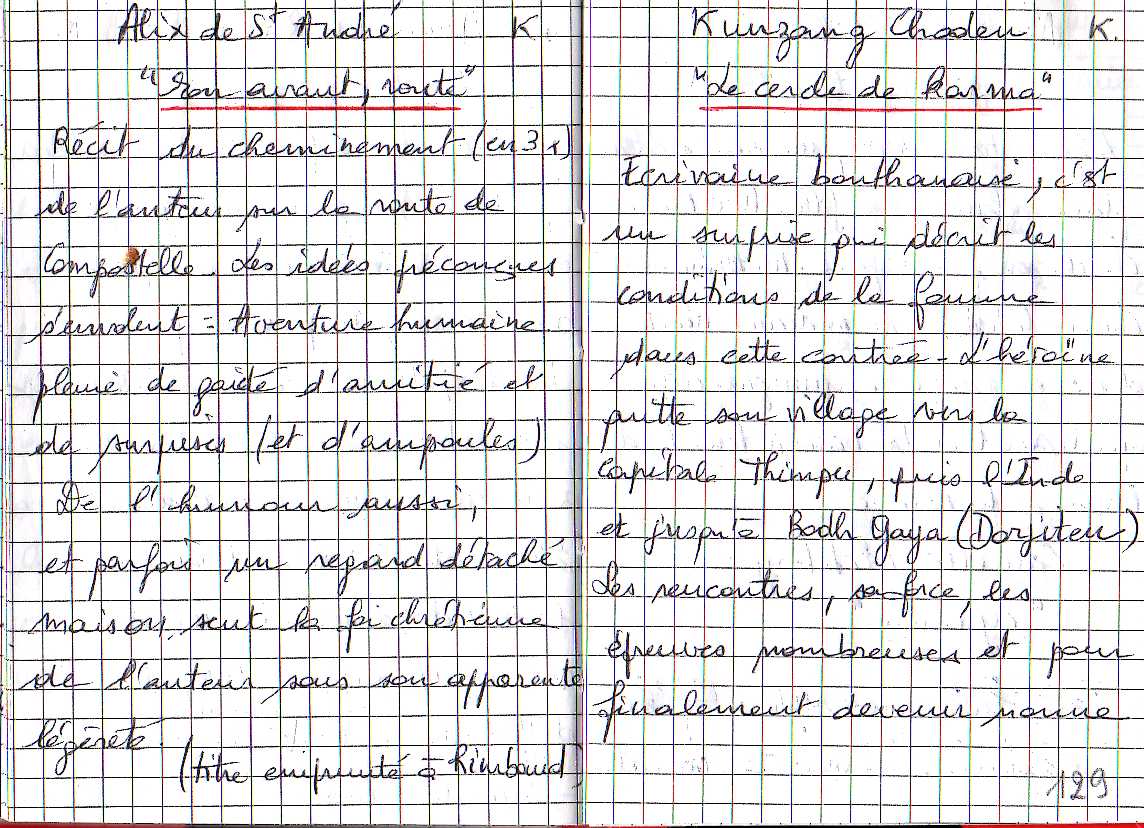 Alix de St André K.
"En avant, route"
Récit du cheminement (en 3 x)
de l'auteur sur la route de
Compostelle. Les idées préconçues
s'envolent = Aventure humaine
pleine de gaieté d'amitié et
de surprises (et d'ampoules)
De l'humour aussi,
et parfois un regard détaché
mais on sent la foi chrétienne
de l'auteur sous son apparente
légèreté.
(titre emprunté à Rimbaud)
Kunzang Choden K.
"Le cercle de karma"
Ecrivaine bouthanaise, c'est
un surprise qui décrit les
conditions de la femme
dans cette contrée - L'héroïne
quitte son village vers la
capitale Thimpu, puis l'Inde
et jusqu'à Bodh Gaya (Dorjiten)
Les rencontres, sa force, les
épreuves nombreuses et pour
finalement devenir nonne
129